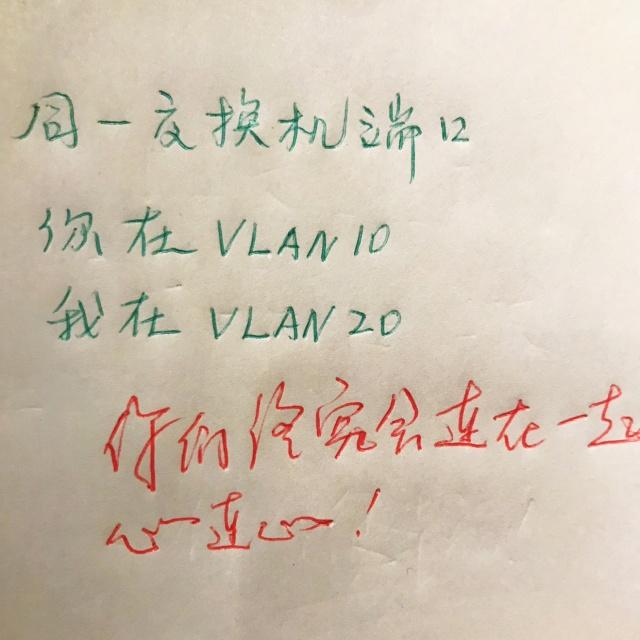 同一交换机端口
你在 VLAN 10
我在 VLAN 20
你们终究会连在一起
心连心!